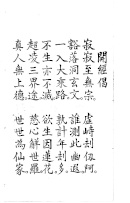 開經偈
寂寂至無宗 虛峙劫仞阿
豁落洞玄文 誰測此幽遐
一入大乘路 孰計年劫多
不生亦不滅 欲生因蓮花
超凌三界途 慈心解世羅
真人無上德 世世為仙家